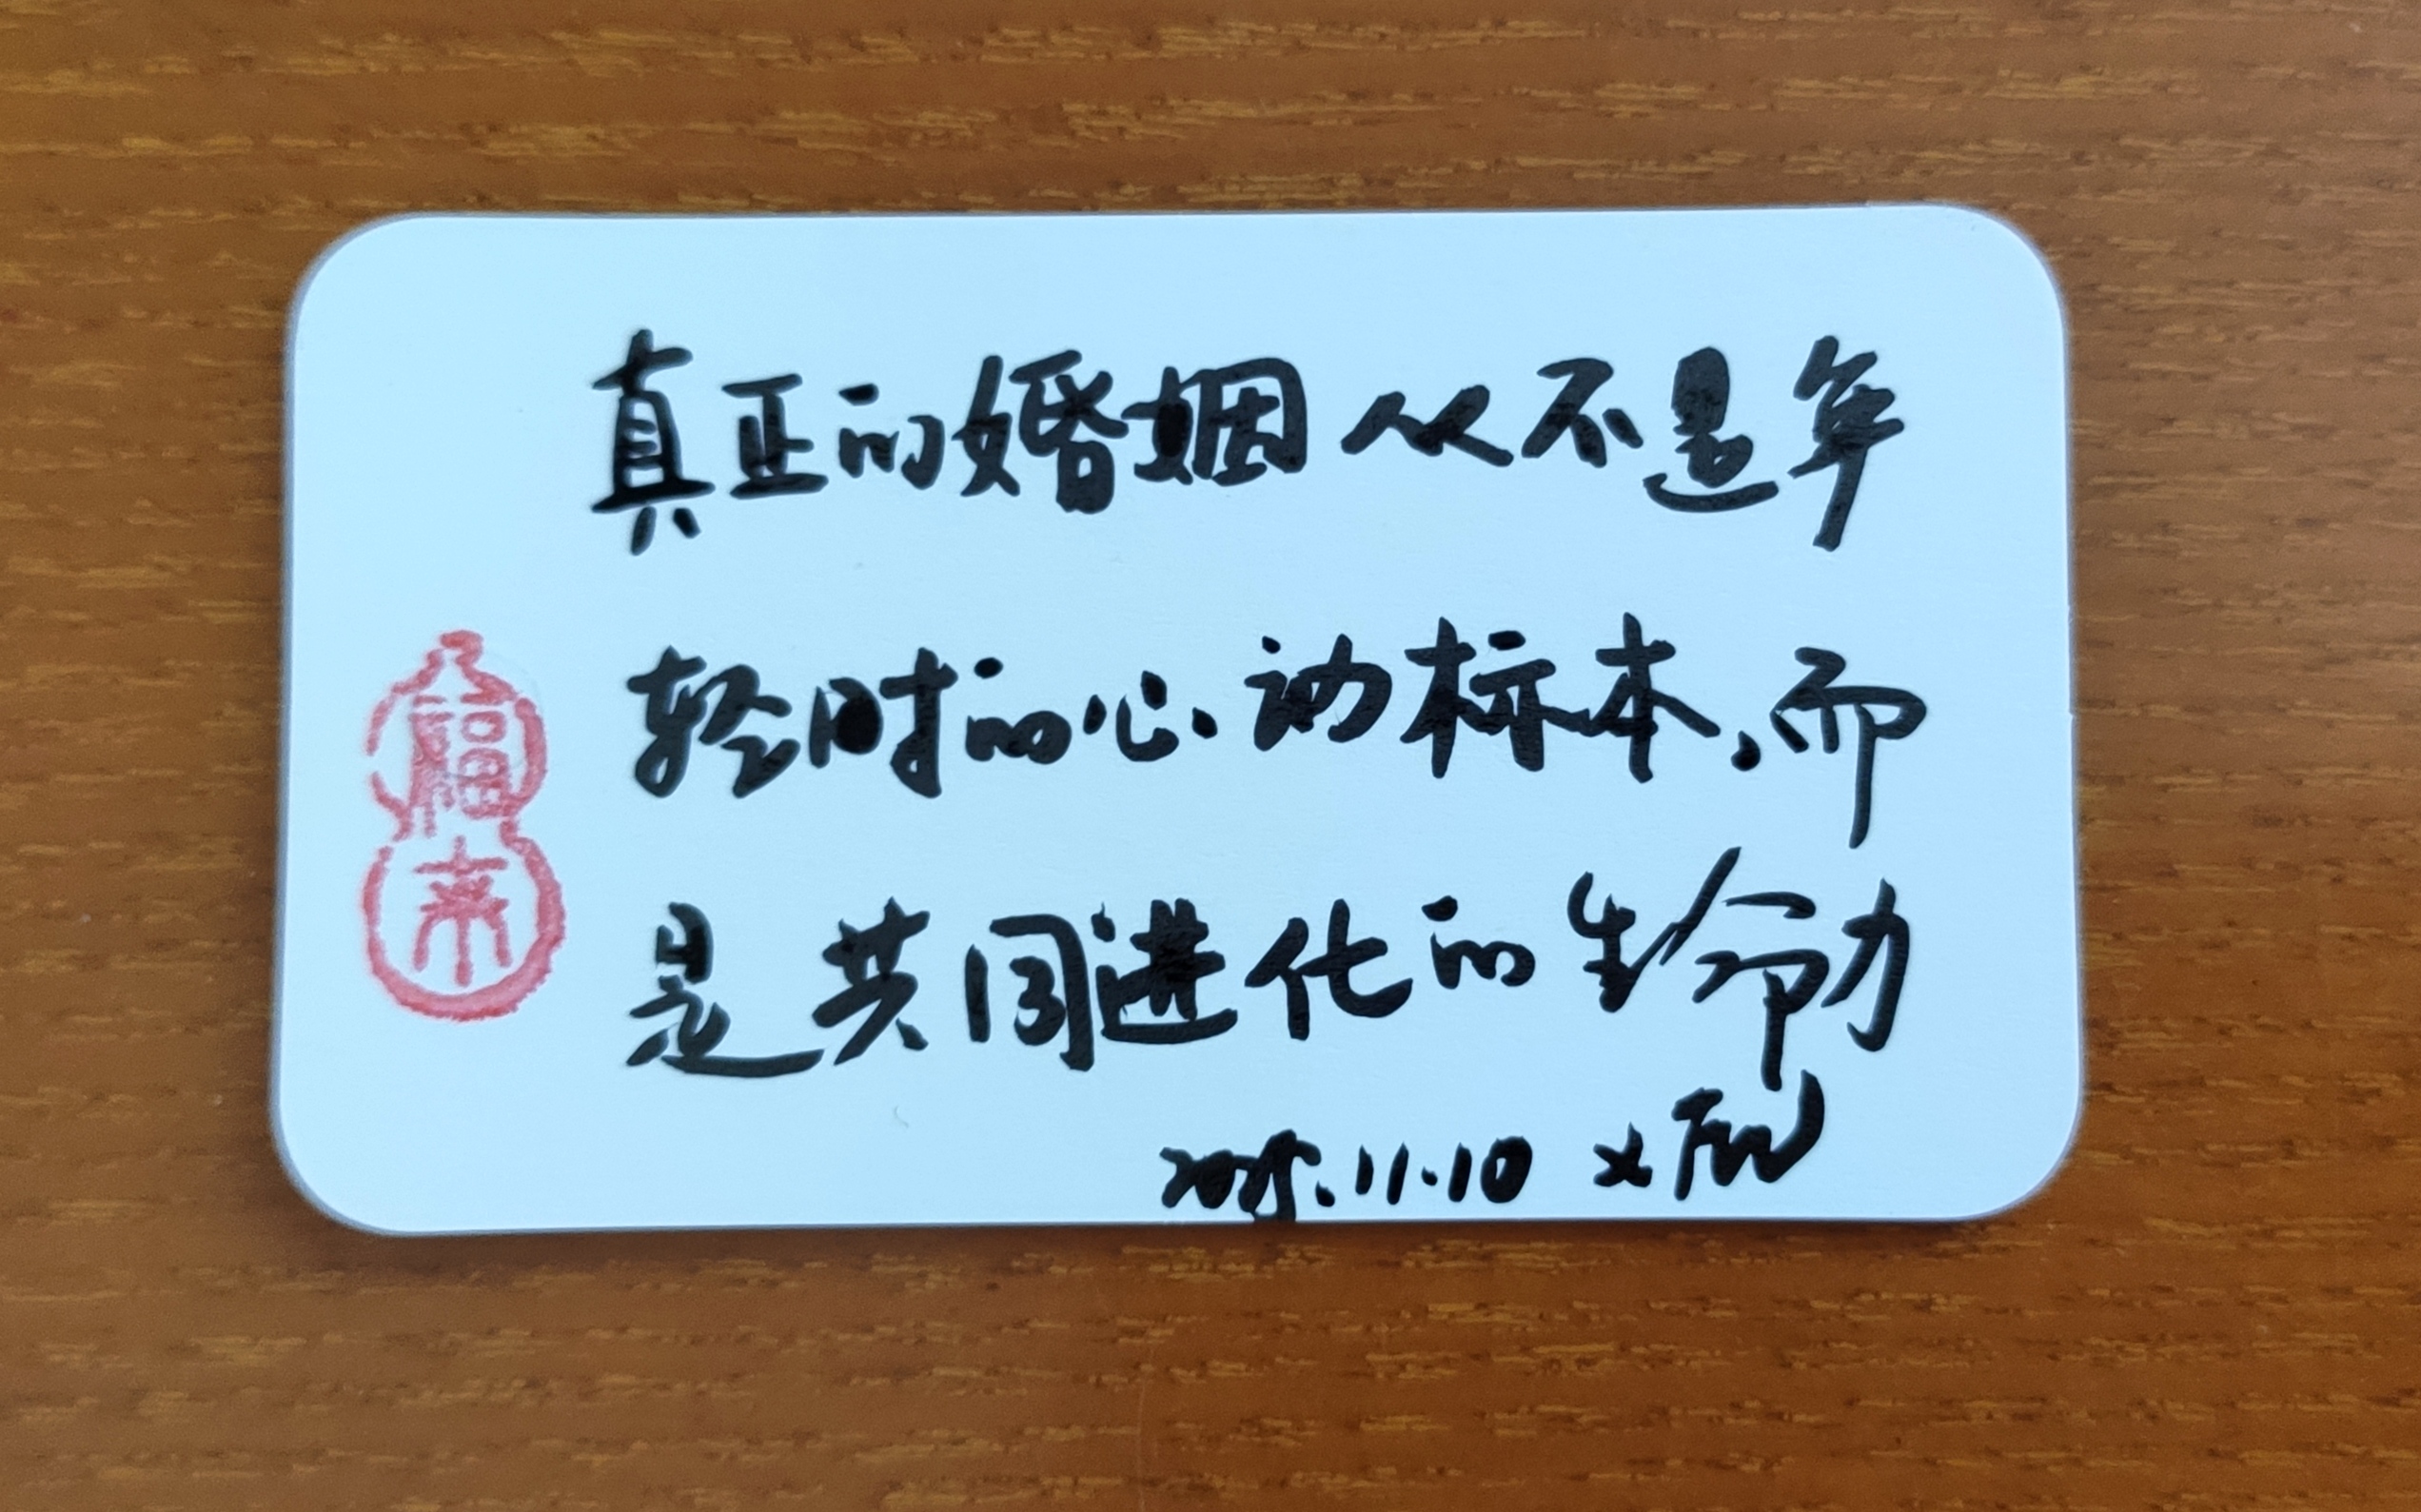 真正的婚姻从不是年
轻时的心动标本,而
是共同进化的生命力
2025.11.10
福
来